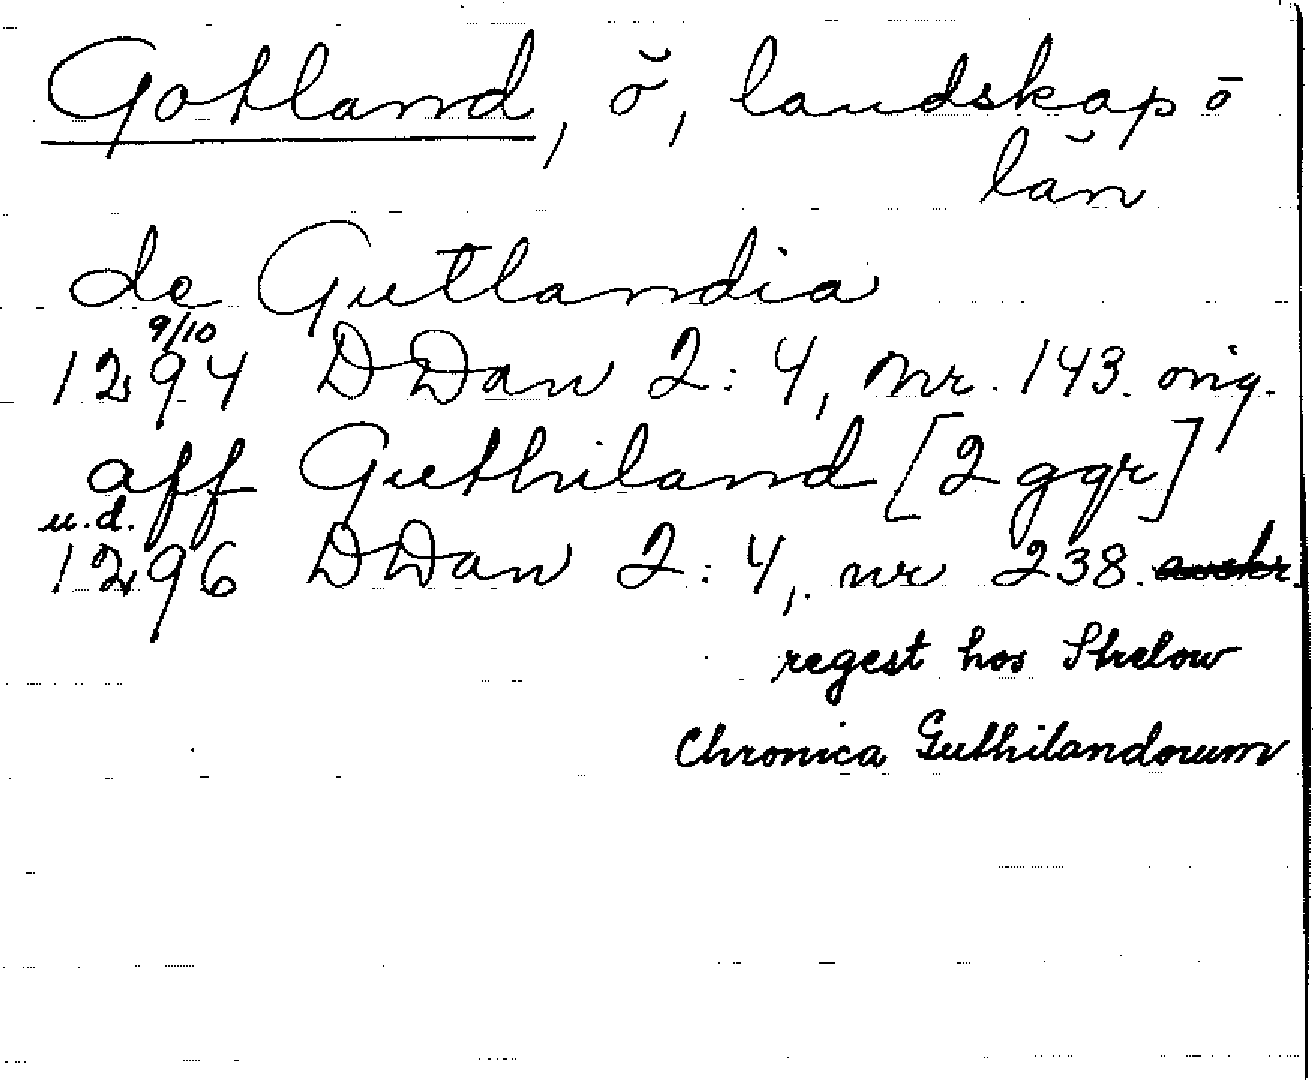 Gotland, ö, landskap o
län
de Gutlandia
9/10
1294 DDan 2:4, nr. 143. orig.
aff Guthiland [2 ggr]
u.d.
1296 DDan 2:4, nr 238. avskr.
regest hos Strelow
Chronica Guthilandorum